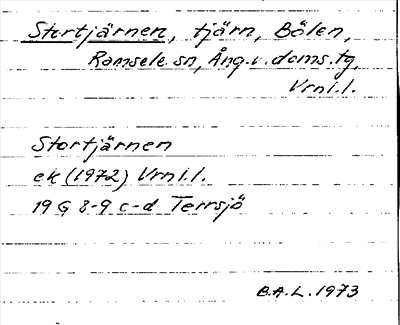 Stortjärnen, tjärn, Bölen,
Ramsele sn, Ång. v. doms. tg,
Vrnl.l.
Stortjärnen
ek (1972) Vrnl.l.
19 G 8-9 c-d Terrsjö
B.A.L. 1973